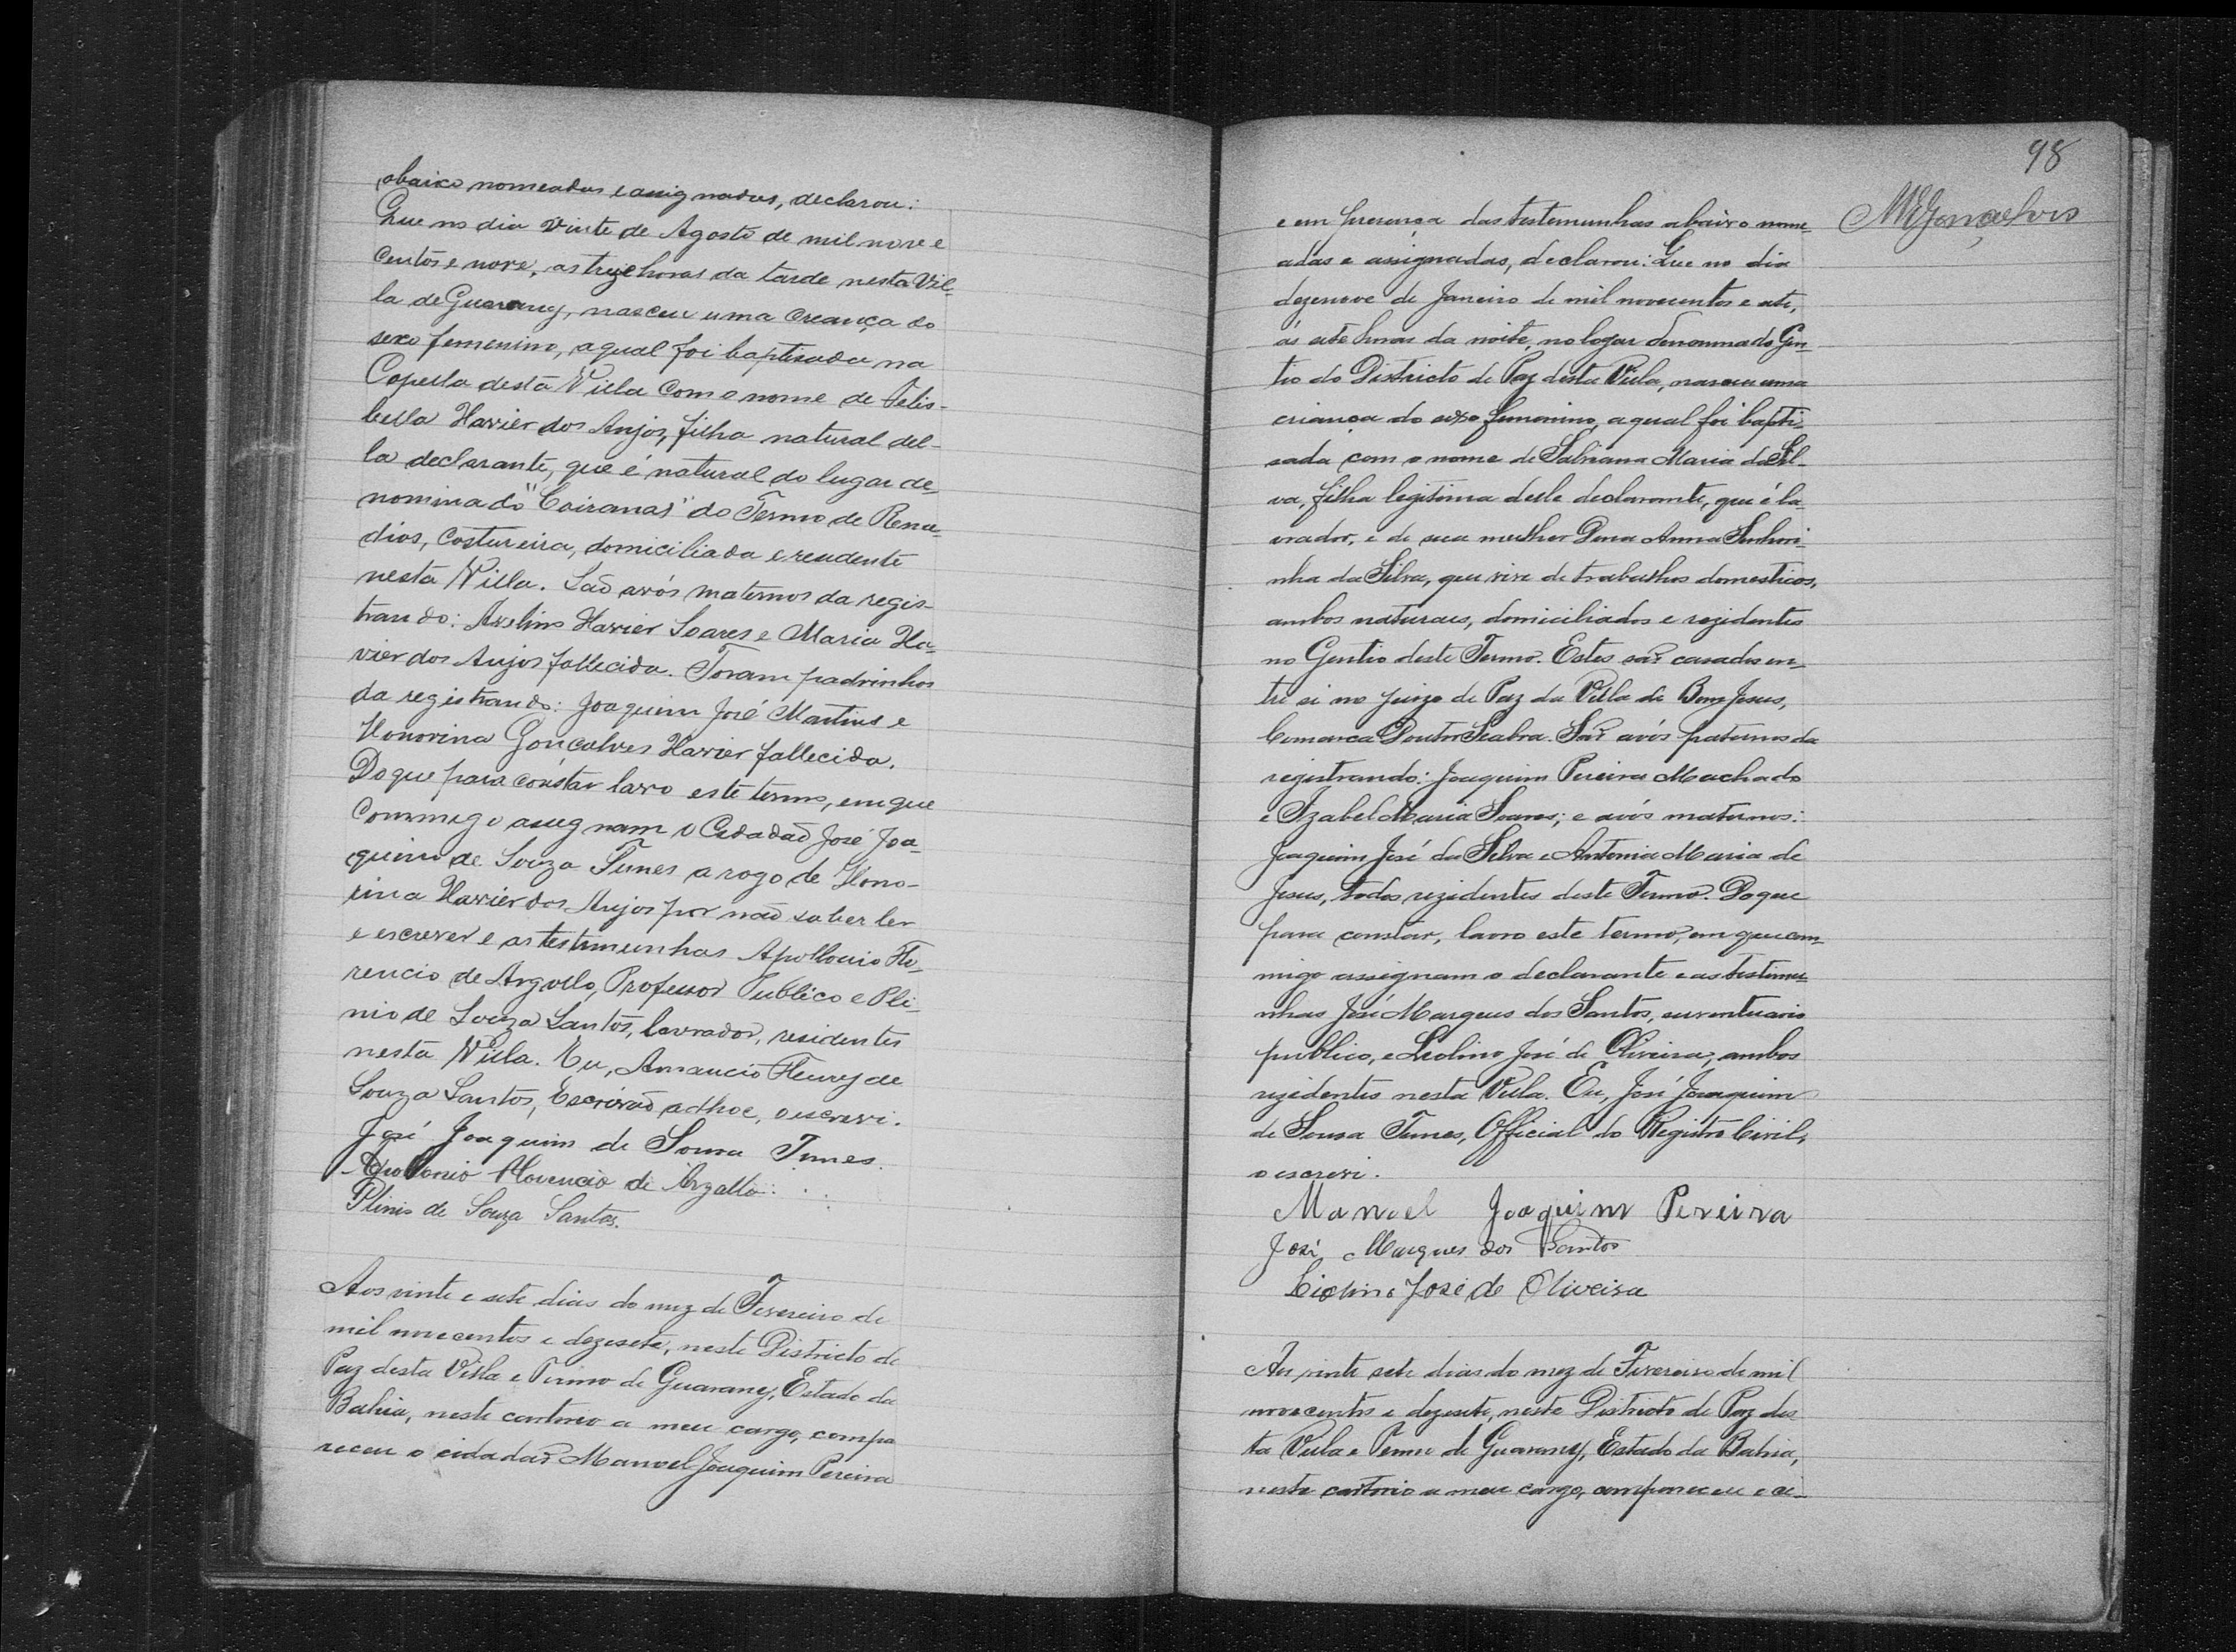 abaixo nomeadas e assignadas, declarou:
Que no dia vinte de Agosto de mil nove e
centos e nove, as treze horas da tarde nesta Vil-
la de Guarany, nasceu uma creança do
sexo femenino, a qual foi baptisada na
Capella desta Villa com o nome de Felis-
bella Xavier dos Anjos, filha natural del-
la declarante, que é natural do lugar de-
nominado "Coiranas" do Termo de Reme-
dios, costureira, domiciliada e residente
nesta Villa. São avós maternos da regis-
trando: Avelino Xavier Soares e Maria Xa-
vier dos Anjos fallecida. Foram padrinhos
da registrando: Joaquim José Martins e
Honorina Gonçalves Xavier fallecida.
Do que para constar lavro este termo, em que
commigo assegnam o Cidadão José Joa-
quim de Souza Tunes a rogo de Hono-
rina Xavier dos Anjos por não saber ler
e escrever e as testimunhas Apollonio Flo-
rencio de Argollo, Professor Publico e Pli-
nio de Souza Santos, lavrador, residentes
nesta Villa. Eu, Amancio Fleury de
Souza Santos, Escrivão adhoc, o escrevi.
José Joaquim de Sousa Tunes
Apollonio Florencio de Argollo
Plinio de Souza Santos.
Aos vinte e sete dias do mez de Fevereiro de
mil novecentos e dezesete, neste Districto de
Paz desta Villa e Termo de Guarany, Estado da
Bahia, neste cartorio a meu cargo, compa
receu o cidadão Manoel Joaquim Pereira
98
MEGonçalves
e em presença das testemunhas abaixo nome-
adas e assignadas, declarou: Que no dia
dezenove de Janeiro de mil novecentos e sete,
ás sete horas da noite, no logar denominado Gen-
tio do Districto de Paz desta Villa, nasceu uma
criança do sexo femenino, a qual foi bapti-
sada com o nome de Sabriana Maria da Sil-
va, filha legitima delle declarante, que é la-
vrador, e de sua mulher Dona Anna Senhori-
nha da Silva, que vive de trabalhos domesticos,
ambos naturaes, domiciliados e rezidentes
no Gentio deste Termo. Estes são casados en-
tre si no juizo de Paz da Villa de Bom Jesus,
Comarca Doutor Seabra. São avós paternos da
registrando: Joaquim Pereira Machado
e Izabel Maria Soares; e avós maternos:
Joaquim José da Silva e Antonia Maria de
Jesus, todos rezidentes deste Termo. Do que
para constar, lavro este termo, em que com-
migo assignam o declarante e as testimu-
nhas José Marques dos Santos, serventuario
publico, e Leolino José de Oliveira, ambos
rezidentes nesta Villa. Eu, José Joaquim
de Sousa Tunes, Official do Registro Civil,
o escrevi.
Manoel Joaquim Pereira
José Marques dos Santos
Liolino José de Oliveira
Aos vinte sete dias do mez de Fevereiro de mil
novecentos e dezesete, neste Districto de Paz des
ta Villa e Termo de Guarany, Estado da Bahia,
neste cartorio a meu cargo, compareceu o ci-